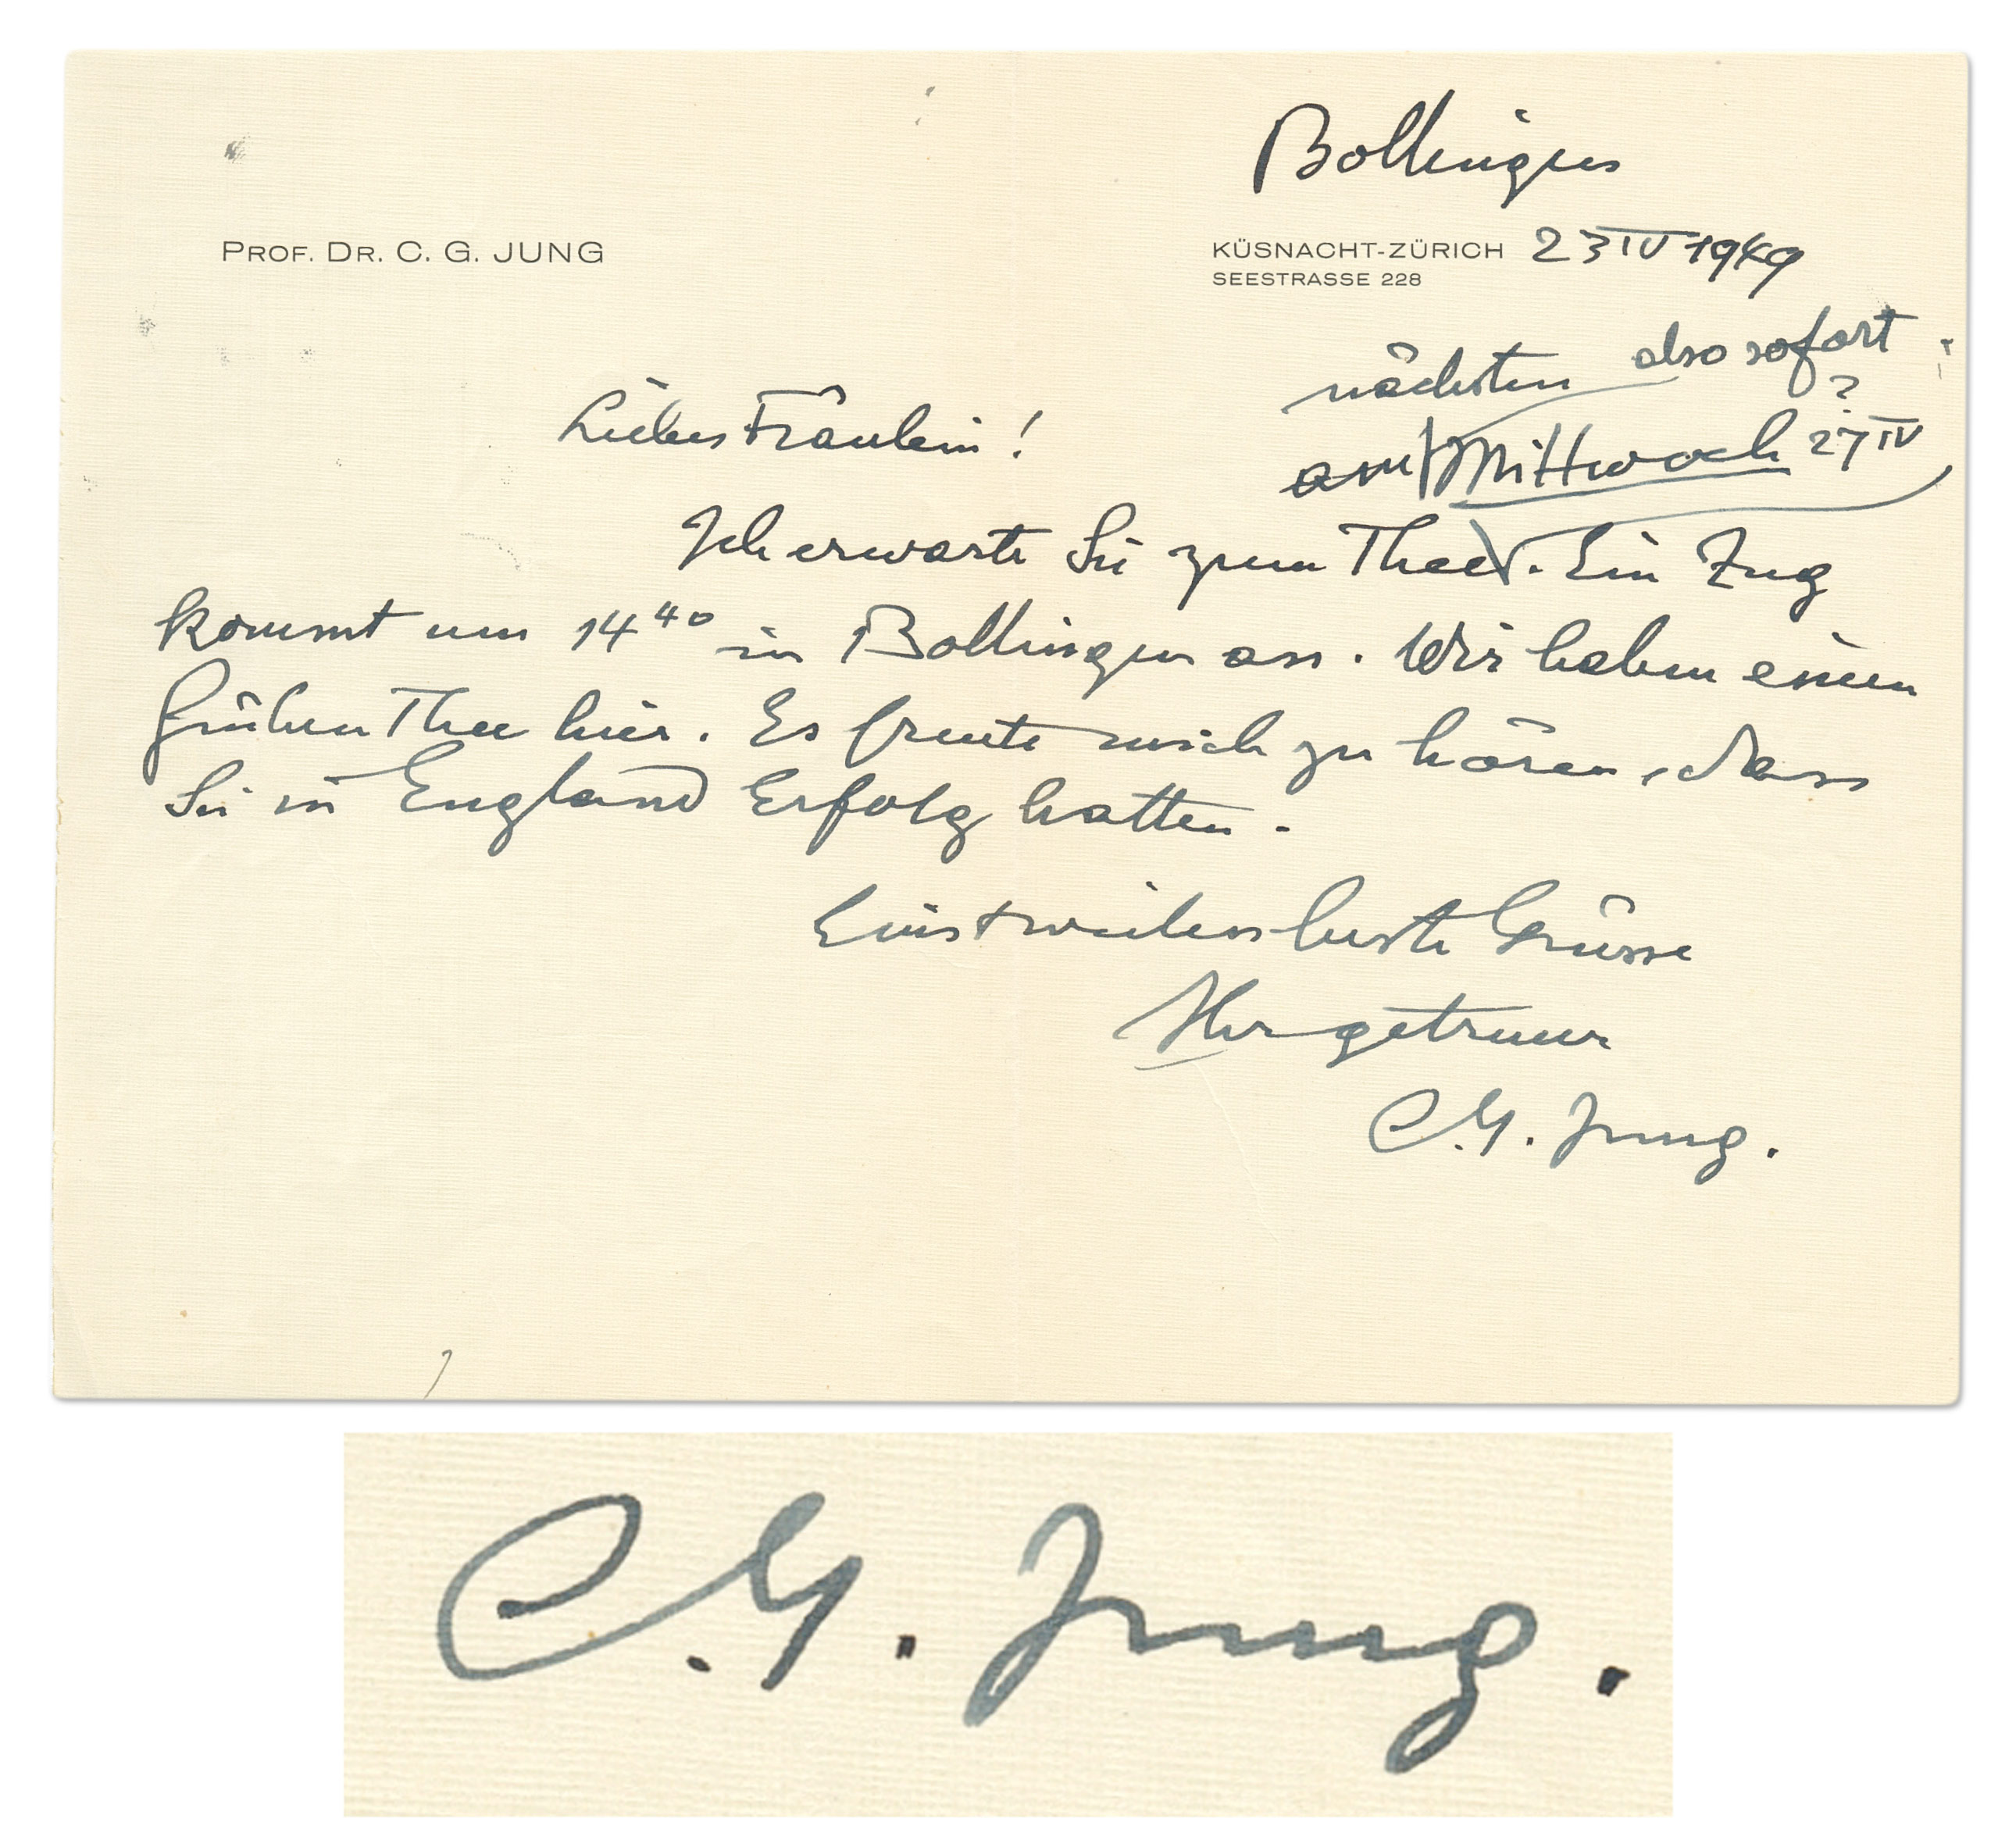 Bollingen
PROF. DR. C. G. JUNG
KÜSNACHT-ZÜRICH 23 IV 1949
SEESTRASSE 228
also sofort
nächsten ?
am Mittwoch 27 IV
Liebes Fräulein!
Ich erwarte Sie zum Thee. Ein Zug
kommt um 14 40 in Bollingen an. Wir haben einen
frühen Thee hier. Es freute mich zu hören, dass
Sie in England Erfolg hatten.
Einstweilen beste Grüsse
Ihr getreuer
C. G. Jung.
C. G. Jung.